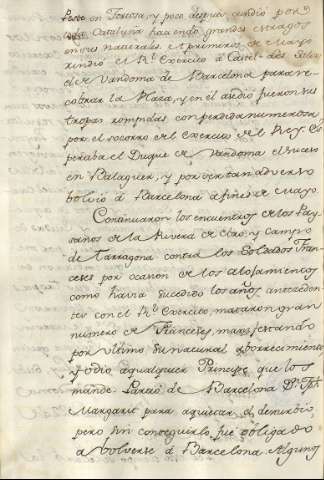 Peste en Tortosa, y poco despues cundiò por
Cataluña haciendo grandes estragos
en sus naturales. A primeros de Mayo
rindió el Rl Exercito à Castel
el de Vandoma de Barcelona para re-
cobrar la Plaza, y en el asedio fueron sus
tropas rompidas con perdida numerosa
por el socorro del Exercito del Rey. Es
peraba el Duque de Vandoma el suceso
en Balaguer, y por ser tan adverso
bolviò à Barcelona à fines de Mayo.
Continuaron los encuentros de los Pay-
sanos de la Rivera de Ebro, y Campo
de Tarragona contra los Soldados Fran-
ceses por ocasion de los alojamientos
como havia sucedido los años anteceden-
tes con el Rl Exercito, mataron gran
numero de Franceses, manifestando
por ultimo su natural aborrecimiento
y odio à qualquier Principe que los
mande. Partiò de Barcelona Dn Jph
Margarit para aquietar el disturbio,
pero sin conseguirlo, fue obligado
à bolverse à Barcelona. Algunos